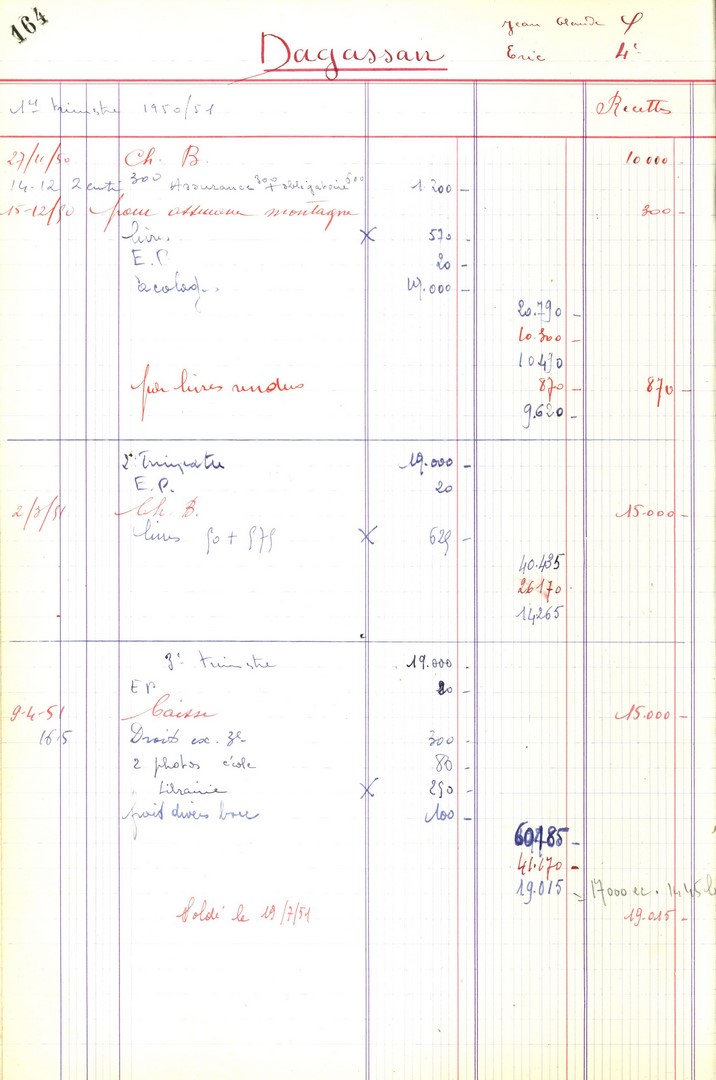 164
Jean Claude
Dagassan
Eric 4e
1er trimestre 1950/51 Recettes
27/11/50 Ch. B. 10 000
14-12 300 Assurance 300 + obligatoire 600 1.200 -
15-12/50 pour assurance montagne 300 -
livres X 570 -
E.P. 20 -
Scolarité 19.000 -
20.790 -
10.300 -
10490
pour livres rendus 870 - 870 -
9.620 -
2e Trimestre 19.000 -
E.P. 20
2/3/51 Ch. B. 15.000 -
livres 50 + 575 X 625 -
40.435
26170
14265
3e trimestre 19.000 -
EP 20 -
9-4-51 Caisse 15.000 -
16 5 Droits ex. 3e 300 -
2 photos école 80 -
Librairie X 250 -
divers bacc 100 -
60185 -
41.170 -
19.015 - 17000
Soldé le 19/7/51 19.015 -